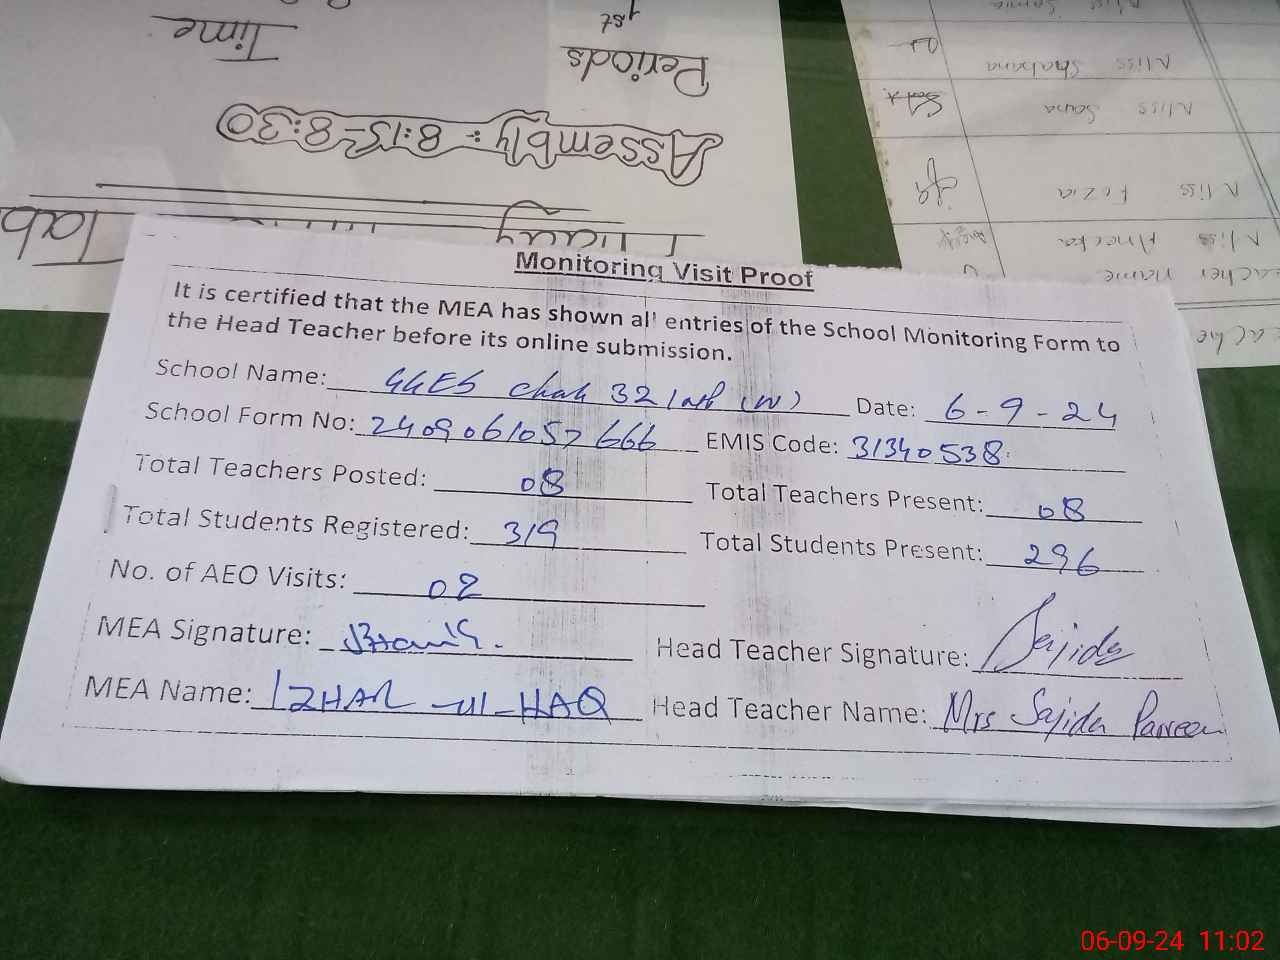 Time
Periods
1st
Assembly :- 8:15-8:30
Miss Shabana
Miss Sana
Miss Fozia
Miss Aneeka
Teacher name
Monitoring Visit Proof
It is certified that the MEA has shown all entries of the School Monitoring Form to
the Head Teacher before its online submission.
School Name: GGES Chak 32 (W) Date: 6-9-24
School Form No: 2409061057666 EMIS Code: 31340538
Total Teachers Posted: 08 Total Teachers Present: 08
Total Students Registered: 319 Total Students Present: 296
No. of AEO Visits: 02
MEA Signature: Head Teacher Signature: Sajida
MEA Name: IZHAR-ul-HAQ Head Teacher Name: Mrs Sajida Parveen
06-09-24 11:02